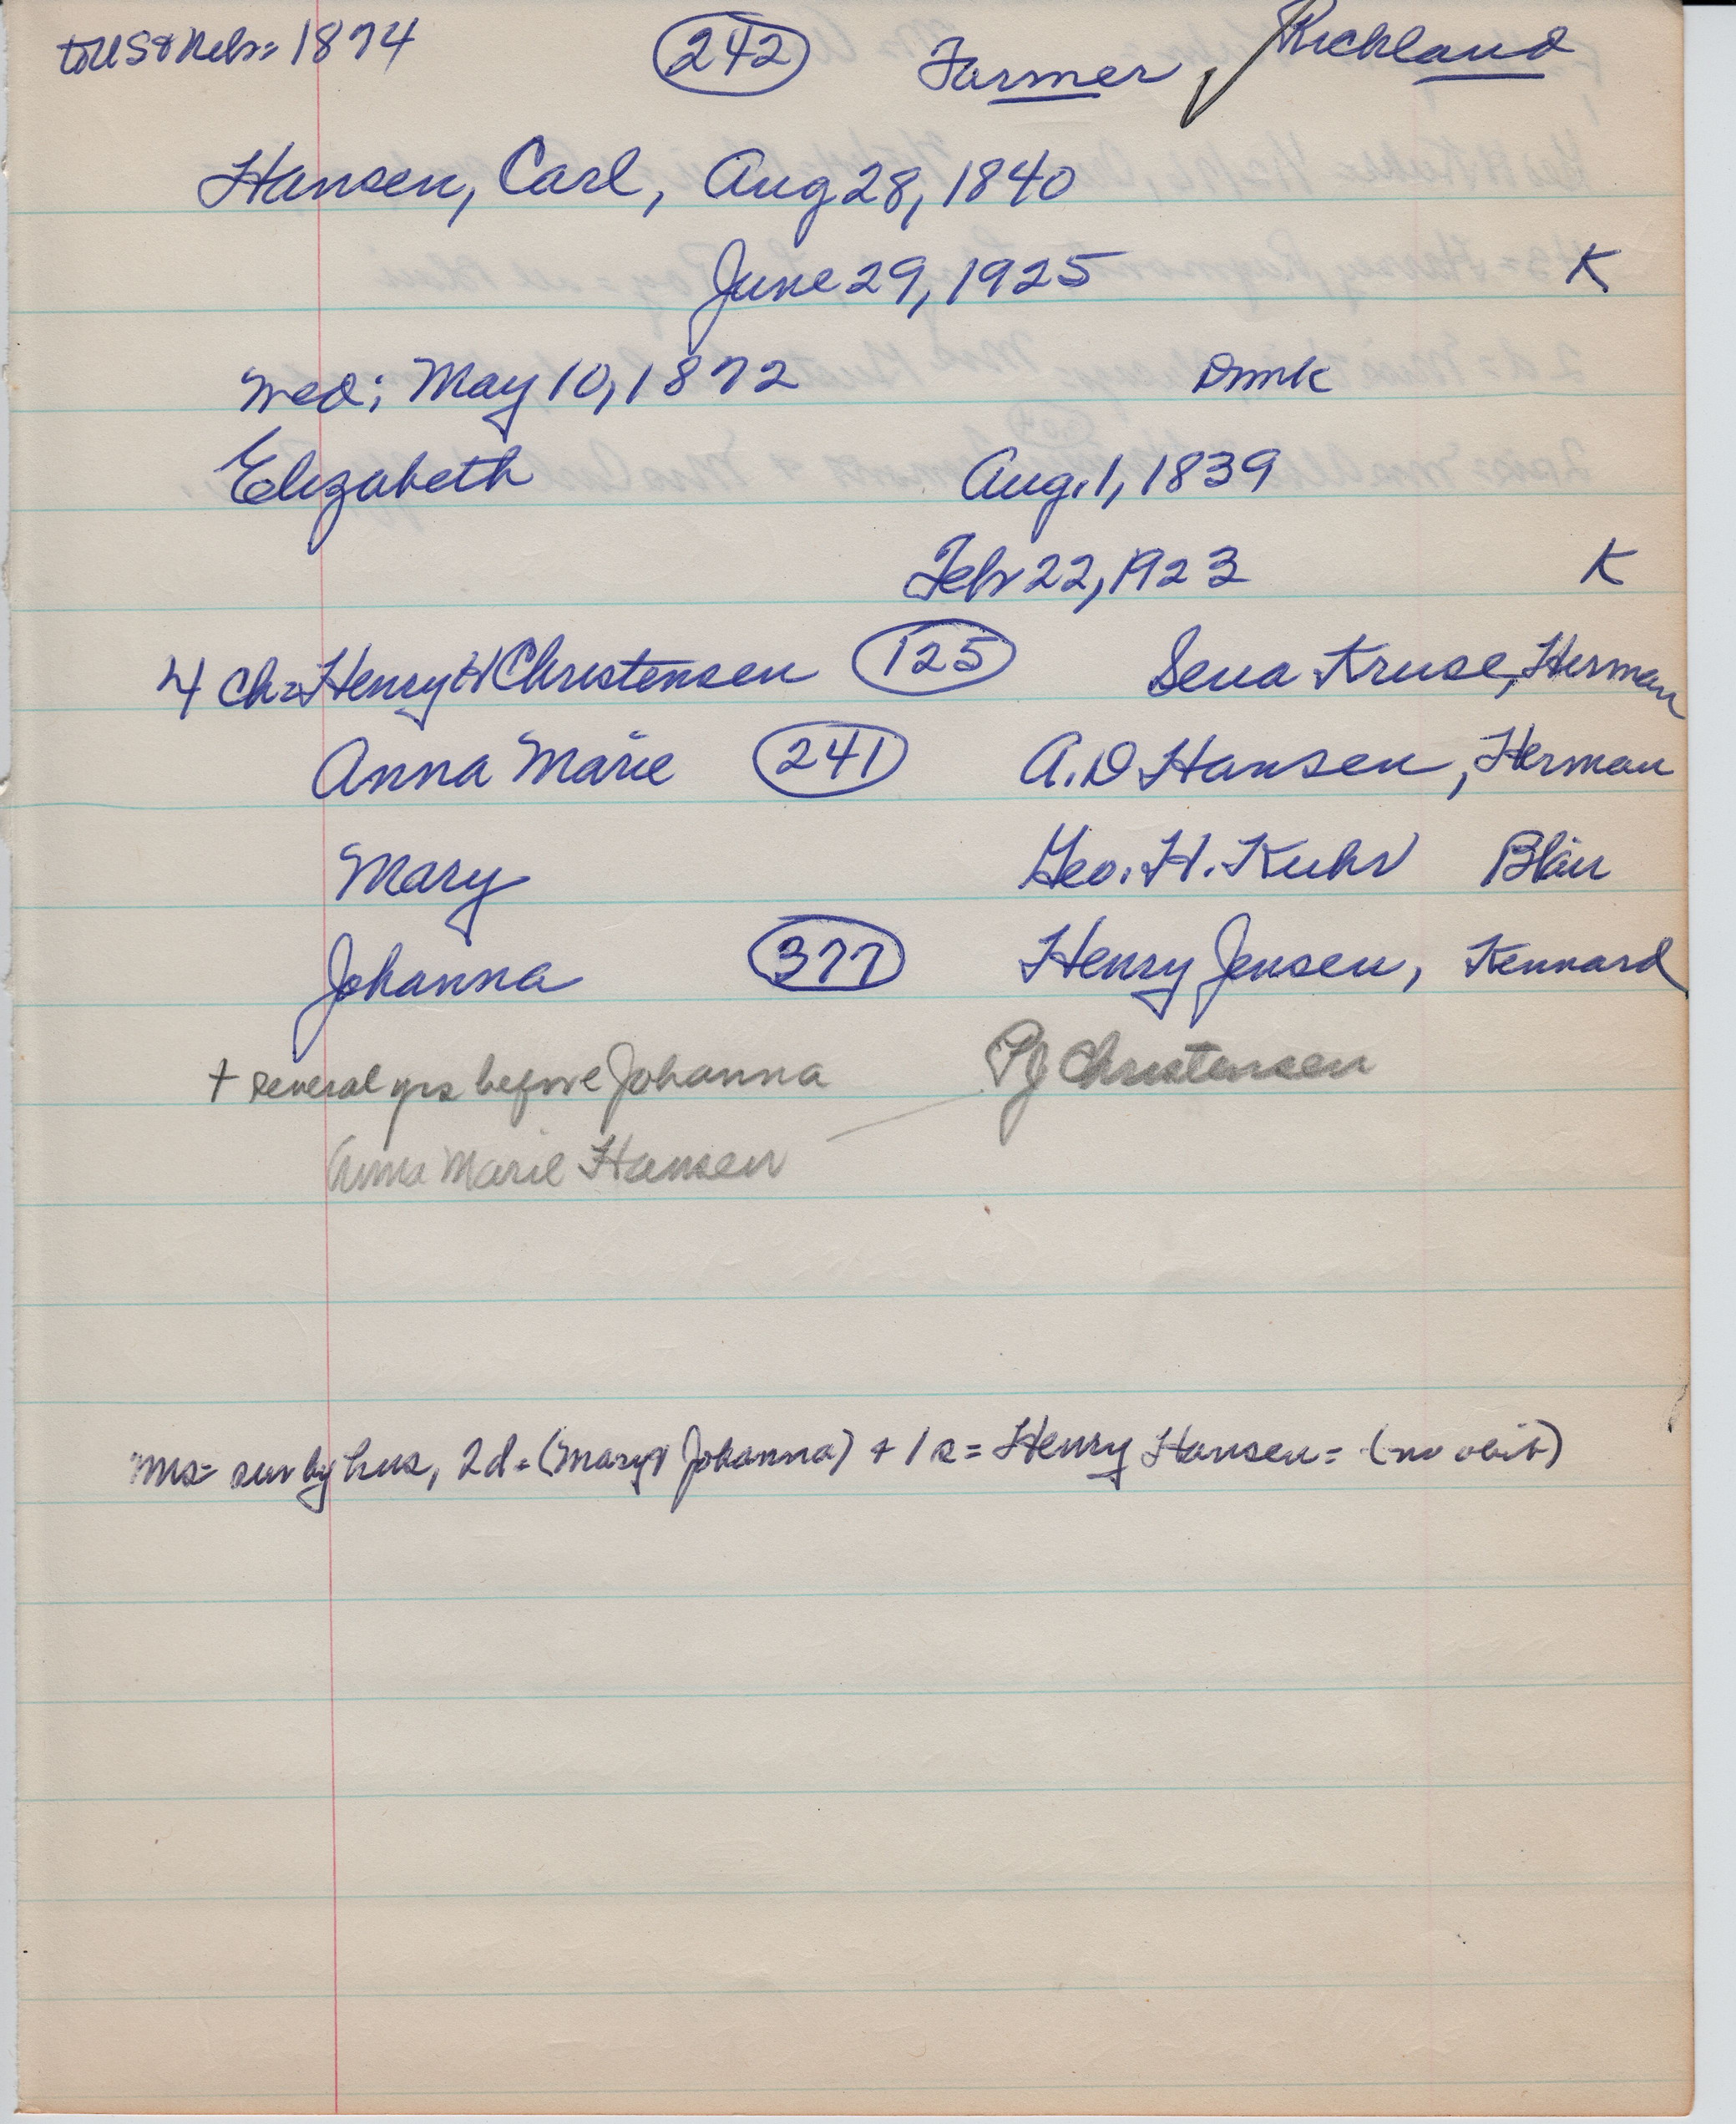 to US & Nebr = 1874 242 Farmer Richland
Hansen, Carl, Aug 28, 1840
June 29, 1925 K
wed; May 10, 1872 Dnmk
Elizabeth Aug. 1, 1839
Febr 22, 1923 K
4 ch = Henry H Christensen 125 Sena Kruse, Herman
Anna Marie 241 A. D Hansen, Herman
Mary Geo. H. Kuhr Blair
Johanna 377 Henry Jensen, Kennard
+ several yrs before Johanna PJ Christensen
Anna Marie Hansen
Mrs = surv by hus, 2 d = (Mary & Johanna) + 1 s = Henry Hansen = (no obit)